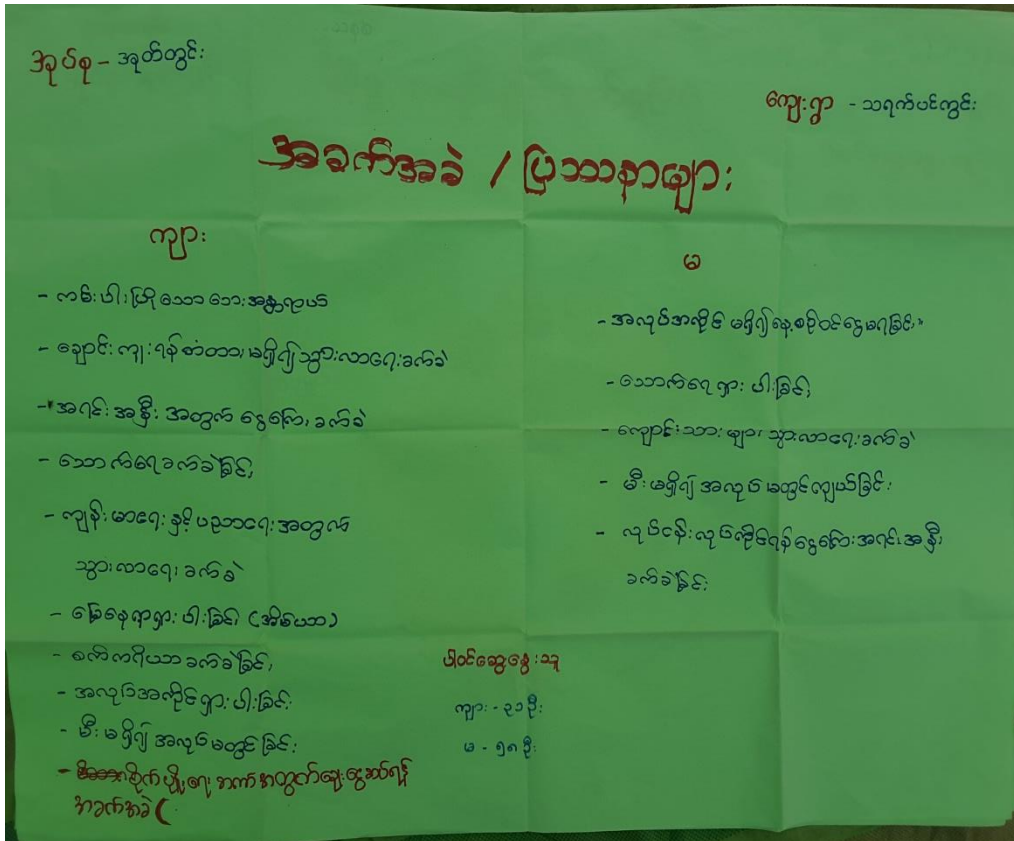 အုပ်စု - အုတ်တွင်း
ကျေးရွာ - သရက်ပင်ကွင်း
အခက်အခဲ / ပြဿာနာများ
ကျား
- ကမ်းပါးပြိုသောဘေးအန္တရာယ်
- ချောင်းကူးရန်တံတားမရှိ၍သွားလာရေးခက်ခဲ
- အရင်းအနှီး အတွက် ငွေကြေးခက်ခဲ
- သောက်ရေခက်ခဲခြင်း
- ကျန်းမာရေးနှင့်ပညာရေးအတွက်
သွားလာရေးခက်ခဲ
- မြေနေရာရှားပါးခြင်း (အိမ်ယာ)
- စက်ကရိယာခက်ခဲခြင်း
- အလုပ်အကိုင်ရှားပါးခြင်း
- မီးမရှိ၍ အလုပ်မတွင်ခြင်း
- စိုက်ပျိုးရေး အတွက်ချေးငွေဆပ်ရန်
အခက်အခဲ (
မ
- အလုပ်အကိုင် မရှိ၍နေ့စဉ်ဝင်ငွေမရခြင်း
- သောက်ရေရှားပါးခြင်း
- ကျောင်းသားများ သွားလာရေးခက်ခဲ
- မီးမရှိ၍ အလုပ်မတွင်ကျယ်ခြင်း
- လုပ်ငန်းလုပ်ကိုင်ရန်ငွေကြေးအရင်းအနှီး
ခက်ခဲခြင်း
ပါဝင်ဆွေးနွေးသူ
ကျား - ၃၁ ဦး
မ - ၅၈ ဦး